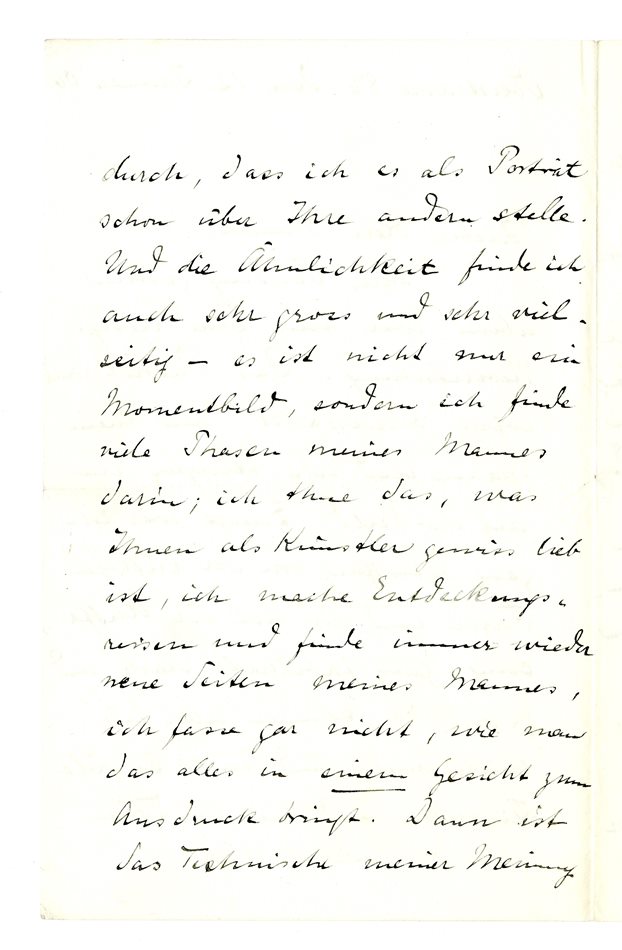 durch, dass ich es als Porträt
schon über Ihre andern stelle.
Und die Ähnlichkeit finde ich
auch sehr gross und sehr viel-
seitig – es ist nicht nur ein
Momentbild, sondern ich finde
viele Phasen meines Mannes
darin; ich thue das, was
Ihnen als Künstler gewiss lieb
ist, ich mache Entdeckungs-
reisen und finde immer wieder
neue Seiten meines Mannes,
ich fasse gar nicht, wie man
das alles in einem Gesicht zum
Ausdruck bringt. Dann ist
das Technische meiner Meinung